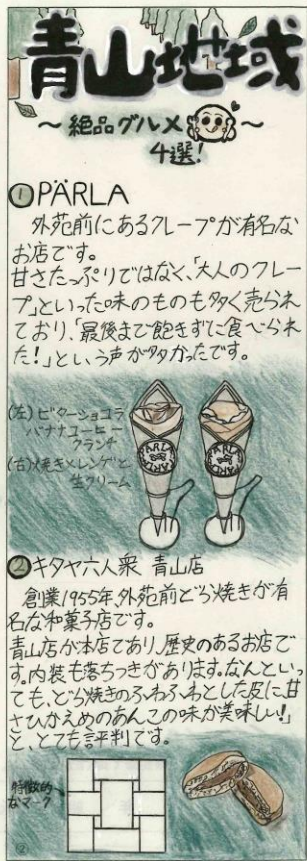 青山地域
～絶品グルメ～
4選!
① PÄRLA
外苑前にあるクレープが有名な
お店です。
甘さたっぷりではなく、「大人のクレー
プ」といった味のものも多く売られ
ており、「最後まで飽きずに食べられ
た!」という声が多かったです。
(左)ビターショコラ
バナナコーヒー
クランチ
(右)焼きメレンゲと
生クリーム
PÄRLA
PÄRLA
② キタヤ六人衆 青山店
創業1955年、外苑前どら焼きが有
名な和菓子店です。
青山店が本店であり、歴史のあるお店で
す。内装も落ちつきがあります。なんといっ
ても、どら焼きのふわふわとした皮に、甘
さひかえめのあんこの味が美味しい!」
と、とても評判です。
特徴的
なマーク